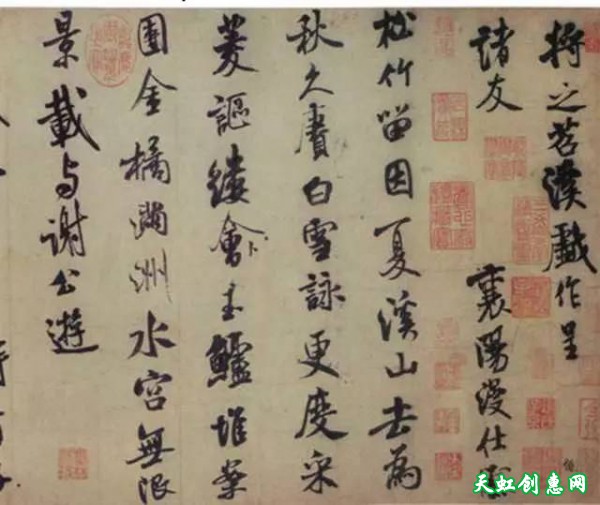 将之苕溪戯作呈
諸友
襄陽漫仕黻
松竹留因夏溪山去為
秋久賡白雪詠更度采
菱謳縷會玉鱸堆案
團金橘滿洲水宮無限
景載与謝公遊
天虹创惠网